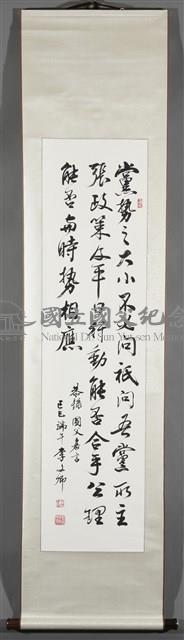 黨勢之大小不必問祇問吾黨所主
張政策及平日行動能否合乎公理
能否與時勢相應
恭錄 國父名言
己巳端午李文卿
國立國父紀念
National Dr. Sun Yat-sen Memorial